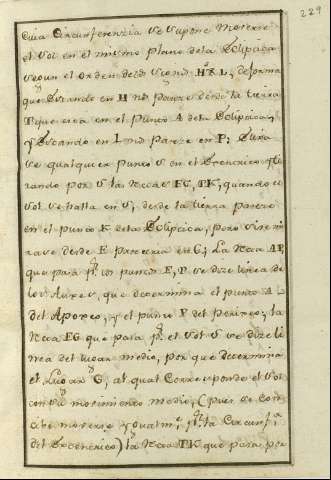 229
cuia Circunferenzia se supone moverse
el Sol en el mismo plano de la Ecliptica
segun el orden de los signos H X L, de forma
que estando en H nos parece desde la tierra
T que esta en el punto A de la Ecliptica,
y estando en L nos parece en P; Tirese
de qualquier punto S en el Excentrico
rando por S las rectas FC, TK, quando el
Sol se halla en S, desde la tierra parece
en el punto K de la Ecliptica, pero si se mi
rase desde E pareceria en G; La recta AP,
que pasa pr. los puntos E, P se dize linea de
los Auxes, que determina el punto A
del Apogeo, y el punto P del perigeo; la
recta EG que pasa pr. el Sol S se dize li
nea del lugar medio, por que determina
el Lugar G, al qual corresponde el Sol
con su movimiento medio, (pues se con
cibe moverse ygualmte. pr. la Circunfa.
del Excentrico) la recta TK que pasa por